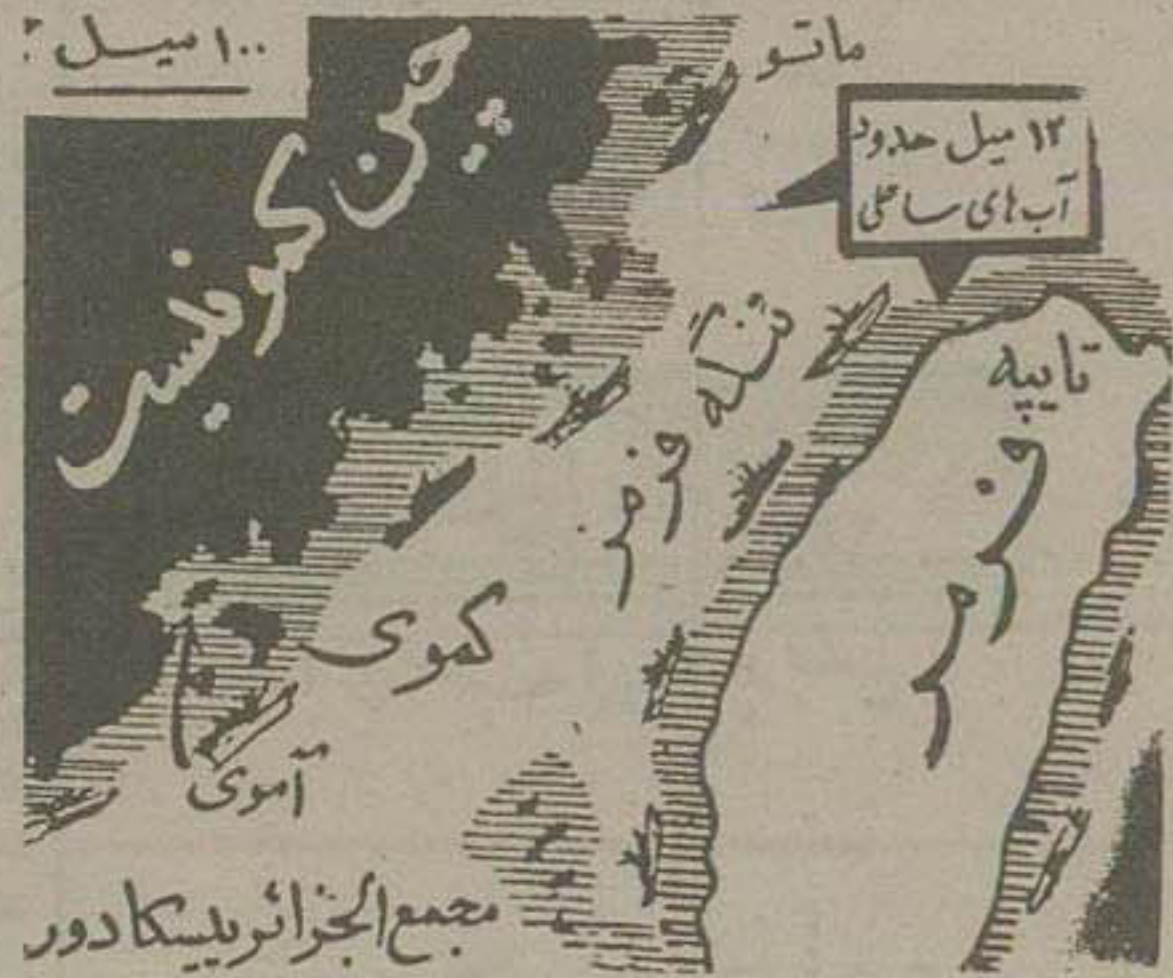 ۱۰۰ میل
ماتسو
۱۲ میل حدود
آب های ساحلی
چین کمونیست
تنگه فرمز
تایپه
فرمز
کموی
آموی
مجمع الجزائر پسکادور